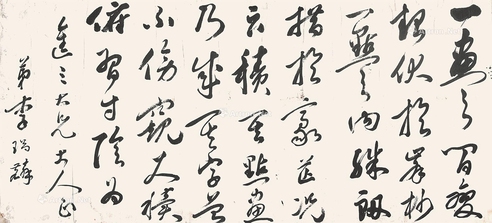 一畫之間變
起伏於峯杪
一點之內殊衄
挫於豪芒況
云積其點畫
乃成其字曾
不傍窺尺牘
俯習寸陰為
大兄大人正
弟李瑞